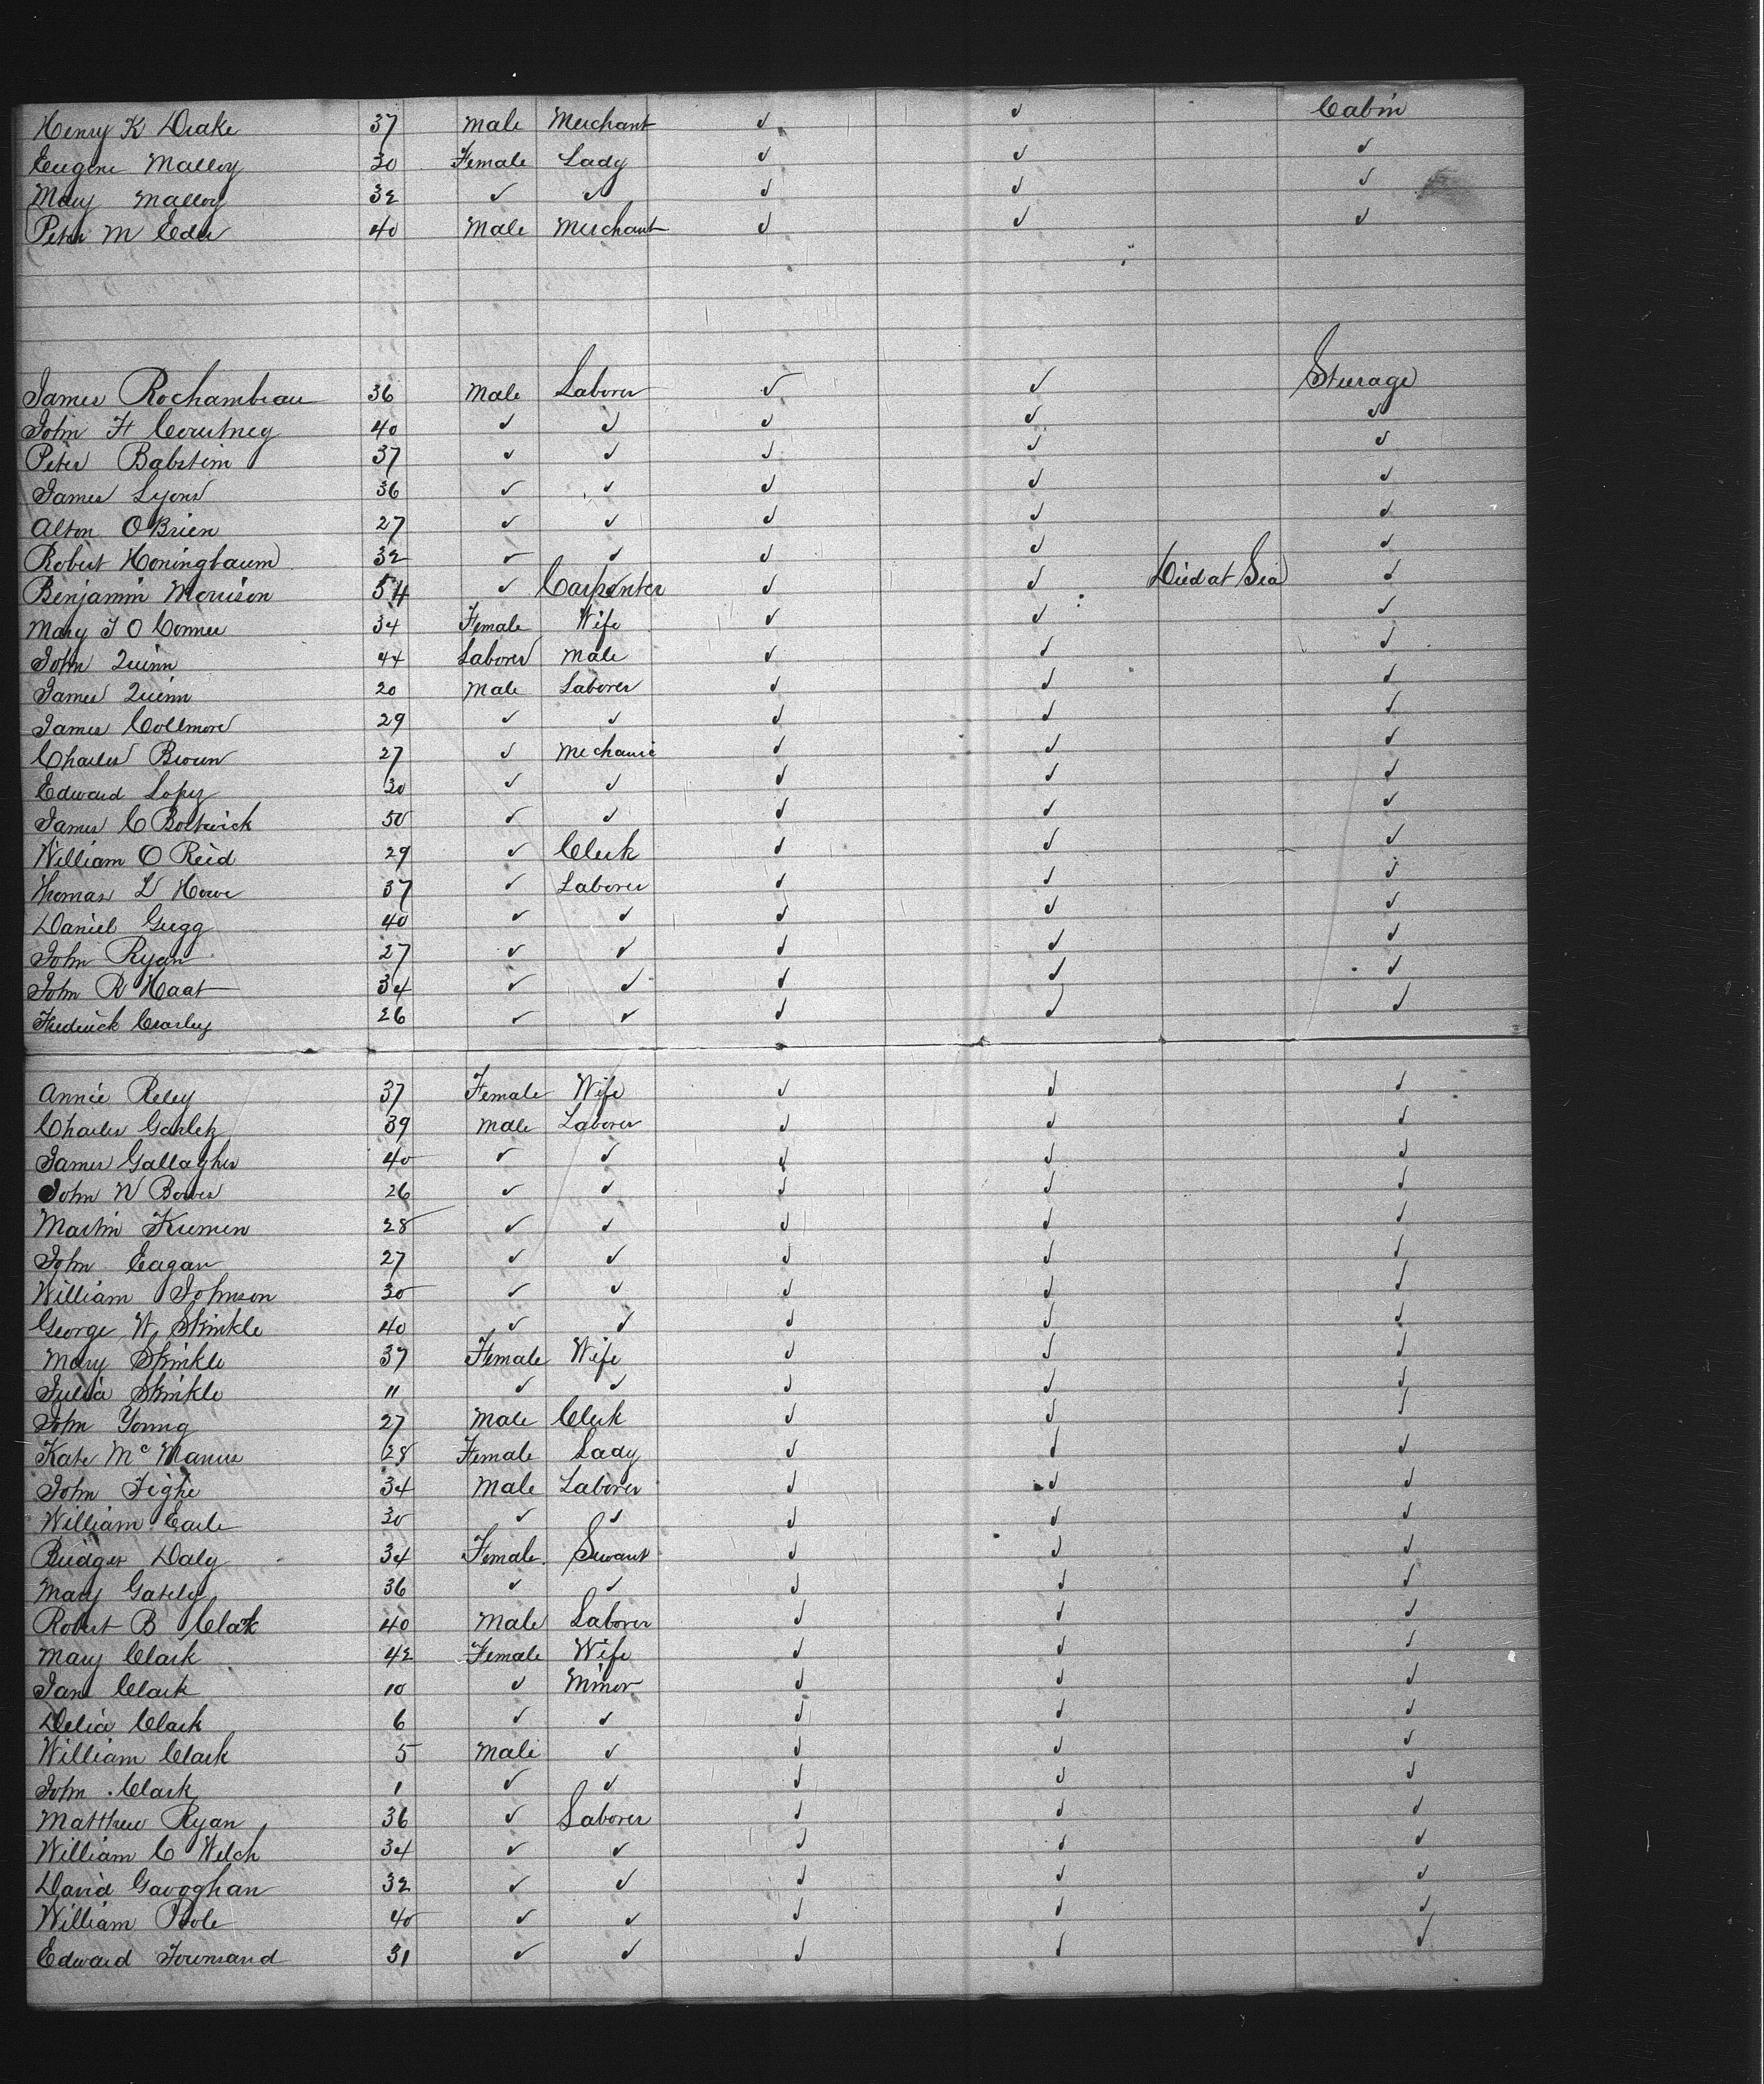 Henry K Drake 37 male Merchant ✓ ✓ Cabin
Eugene Malloy 30 Female Lady ✓ ✓ ✓
Mary Malloy 32 ✓ ✓ ✓ ✓ ✓
Peter M Eder 40 Male Merchant ✓ ✓ ✓
James Rochambeau 36 Male Laborer ✓ ✓ Steerage
John H Courtney 40 ✓ ✓ ✓ ✓ ✓
Peter Babstein 37 ✓ ✓ ✓ ✓ ✓
James Lyons 36 ✓ ✓ ✓ ✓ ✓
Alton O Brien 27 ✓ ✓ ✓ ✓ ✓
Robert Honingbaum 32 ✓ ✓ ✓ ✓ ✓
Benjamin Morrison 54 ✓ Carpenter ✓ ✓ Died at Sea ✓
Mary J O Conner 34 Female Wife ✓ ✓ ✓
John Quinn 44 Laborer Male ✓ ✓ ✓
James Quinn 20 Male Laborer ✓ ✓ ✓
James Collmore 29 ✓ ✓ ✓ ✓ ✓
Charles Brown 27 ✓ Mechanic ✓ ✓ ✓
Edward Lopez 30 ✓ ✓ ✓ ✓ ✓
James C Bostwick 50 ✓ ✓ ✓ ✓ ✓
William O Reid 29 ✓ Clerk ✓ ✓ ✓
Thomas L Howe 37 ✓ Laborer ✓ ✓ ✓
Daniel Gregg 40 ✓ ✓ ✓ ✓ ✓
John Ryan 27 ✓ ✓ ✓ ✓ ✓
John R Haat 34 ✓ ✓ ✓ ✓ ✓
Frederick Crasley 26 ✓ ✓ ✓ ✓ ✓
Annie Reley 37 Female Wife ✓ ✓ ✓
Charles Garletz 39 Male Laborer ✓ ✓ ✓
James Gallagher 40 ✓ ✓ ✓ ✓ ✓
John W Bower 26 ✓ ✓ ✓ ✓ ✓
Martin Kremen 28 ✓ ✓ ✓ ✓ ✓
John Eagan 27 ✓ ✓ ✓ ✓ ✓
William Johnson 30 ✓ ✓ ✓ ✓ ✓
George W Skinkle 40 ✓ ✓ ✓ ✓ ✓
Mary Skinkle 37 Female Wife ✓ ✓ ✓
Julia Skinkle 11 ✓ ✓ ✓ ✓ ✓
John Young 27 Male Clerk ✓ ✓ ✓
Kate Mc Manus 28 Female Lady ✓ ✓ ✓
John Tighe 34 Male Laborer ✓ ✓ ✓
William Earle 30 ✓ ✓ ✓ ✓ ✓
Bridget Daly 34 Female Servant ✓ ✓ ✓
Mary Gately 36 ✓ ✓ ✓ ✓ ✓
Robert B Clark 40 Male Laborer ✓ ✓ ✓
Mary Clark 42 Female Wife ✓ ✓ ✓
Jane Clark 10 ✓ Minor ✓ ✓ ✓
Delia Clark 6 ✓ ✓ ✓ ✓ ✓
William Clark 5 Male ✓ ✓ ✓ ✓
John Clark 1 ✓ ✓ ✓ ✓ ✓
Matthew Ryan 36 ✓ Laborer ✓ ✓ ✓
William C Welch 34 ✓ ✓ ✓ ✓ ✓
David Gavoghan 32 ✓ ✓ ✓ ✓ ✓
William Pole 40 ✓ ✓ ✓ ✓ ✓
Edward Townsand 31 ✓ ✓ ✓ ✓ ✓